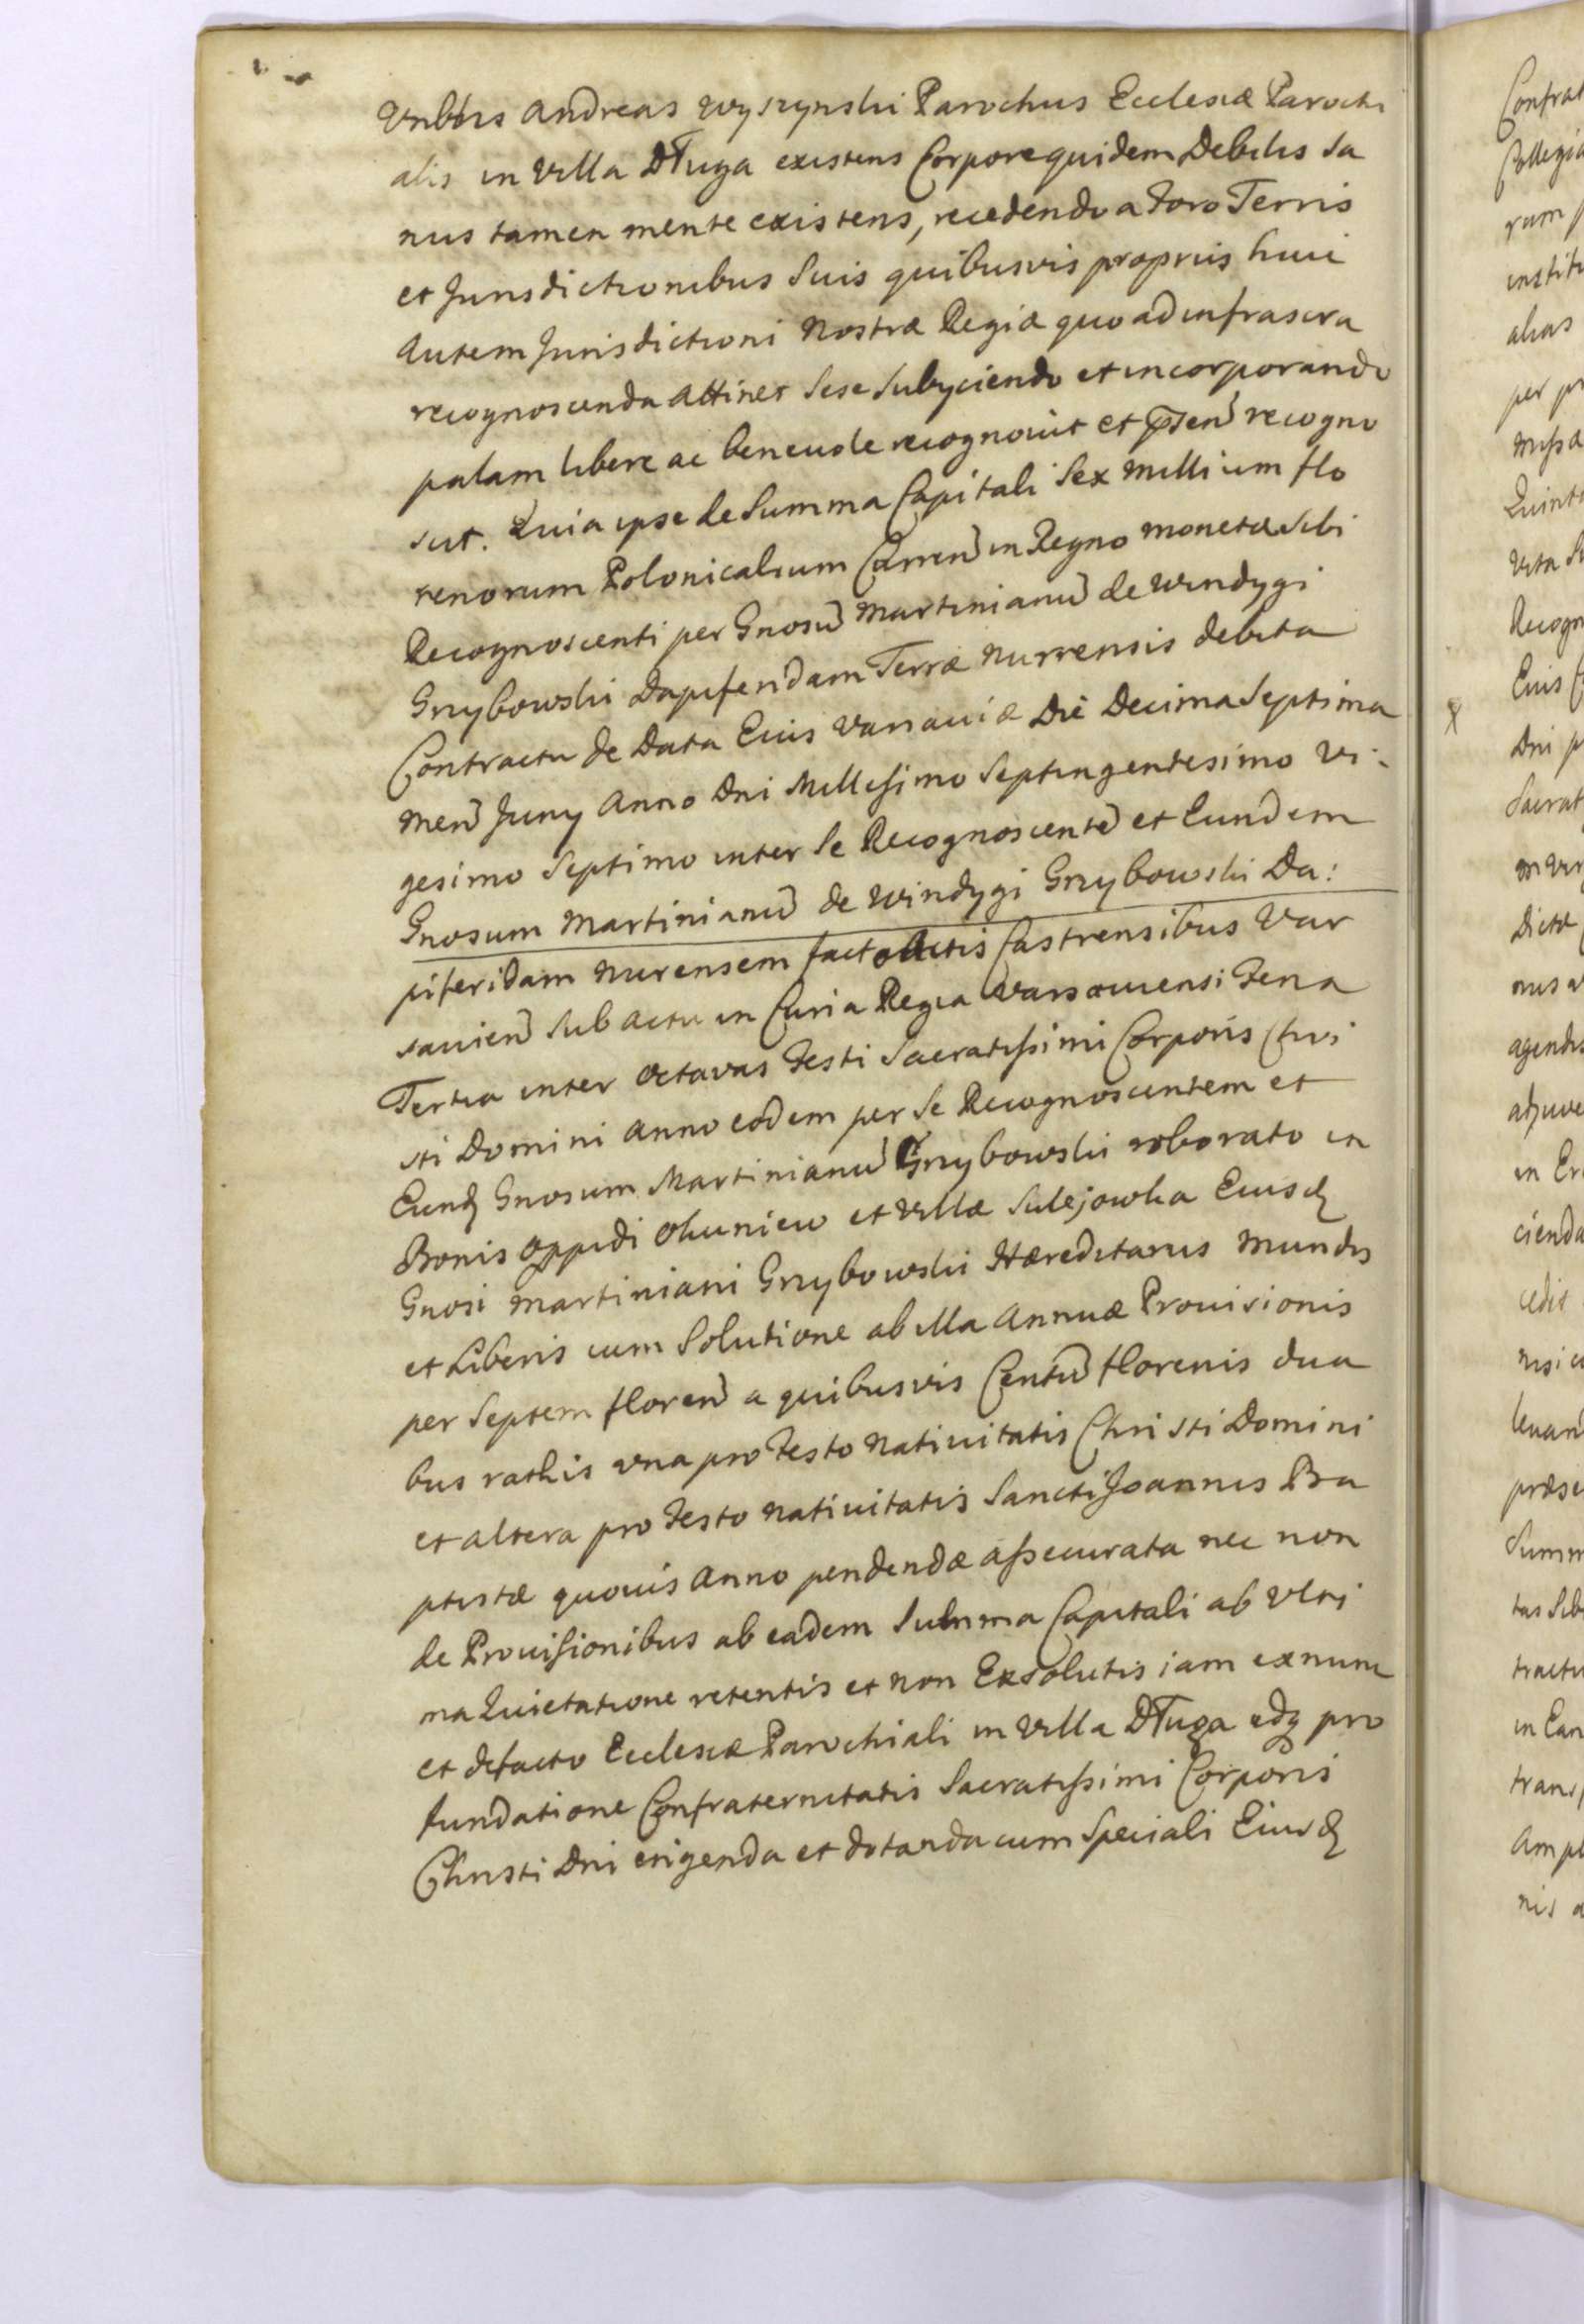 Vnbbīs Andreas Wyszynski Parochus Ecclesiæ Parochi
alis in Villa Długa existens Corpore quidem Debilis Sa
nus tamen mente existens, recedendo a Foro Terris
et Jurisdictionibus Suis quibusvis propriis huic
Autem Jurisdictioni Nostræ Regiæ quo ad infrascra
recognoscenda Attinet Sese Subyciendo et incorporando
palam libere ac beneuole recognouit et p̃sen recogno
scit. Quia ipse de Summa Capitali Sex Millium flo
renorum Polonicalium Curren in Regno monetæ Sibi
Recognoscenti per Gnosū Martinianū de Windygi
Grzybowski Dapiferidam Terræ Nurrensis debita
Contractu de Data Eius Varsauiæ Die Decima Septima
Men Juny Anno Dni Millesimo Septingentesimo Vi-
gesimo Septimo inter Se Recognoscente et Eundem
Gnosum Martinianū de Windygi Grzybowski Da:
piferidam Nurensem facto Actis Castrensibus Var
savien Sub Actu in Curia Regia Varsaviensi Feria
Tertia inter Octavas Festi Sacratissimi Corporis Chri
sti Domini Anno eodem per Se Recognoscentem et
Eund Gnosum Martinianū Grzybowski roborato in
Bonis Oppidi Okuniew et Villæ Sulejowka Eiusd
Gnosi Martiniani Grzybowski Hæreditarijs Mundis
et Liberis cum Solutione ab illa Annuæ Prouisionis
per Septem floren a quibusvis Centū florenis dua
bus rathis vna pro Festo Natiuitatis Christi Domini
et altera pro Festo Natiuitatis Sancti Joannis Ba
ptistæ quouis Anno pendendæ assecurata nec non
de Prouisionibus ab eadem Summa Capitali ab Vlti
ma Quietatione retentis et non Exsolutis iam exnunc
et defacto Ecclesiæ Parochiali in Villa Długa edq pro
fundatione Confraternitatis Sacratissimi Corporis
Christi Dni erigenda et dotanda cum Speciali Eiusd